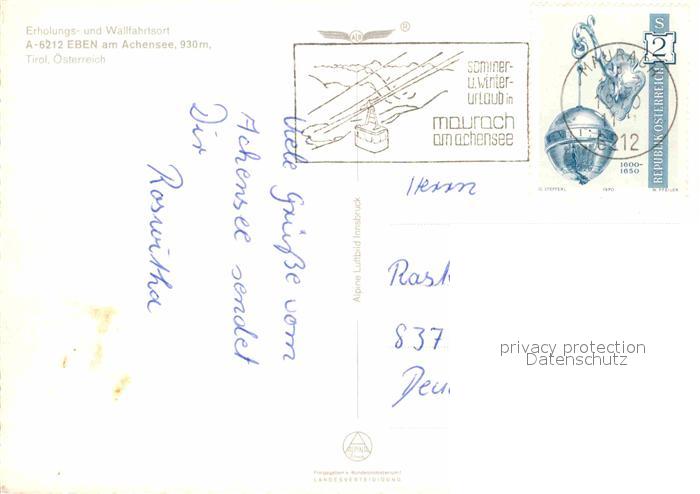 Erholungs- und Wallfahrtsort
A-6212 EBEN am Achensee, 930m,
Tirol, Österreich
Viele Grüße vom
Achensee sendet
Dir
Roswitha
Alpine Luftbild Innsbruck
ALPINE
Freigegeben v. Bundesministerium f.
LANDESVERTEIDIGUNG
®
sommer-
u. winter-
urlaub in
maurach
am achensee
MAURACH
6212
S
2
REPUBLIK ÖSTERREICH
1600-
1650
O. STEFFERL 1970 W. PFEILER
Herrn
Rast
837
Deu
privacy protection
Datenschutz